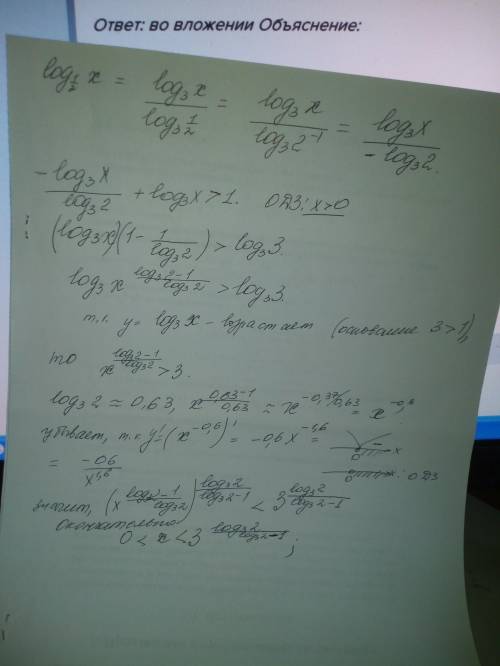 Ответ: во вложении Объяснение:
log_{1/2} x = \frac{log_3 x}{log_3 \frac{1}{2}} = \frac{log_3 x}{log_3 2^{-1}} = \frac{log_3 x}{-log_3 2}.
\frac{-log_3 x}{log_3 2} + log_3 x > 1. ОДЗ: x>0
(log_3 x)(1 - \frac{1}{log_3 2}) > log_3 3.
log_3 x^{\frac{log_3 2-1}{log_3 2}} > log_3 3.
т.к. y = log_3 x - возрастает (основание 3>1),
то x^{\frac{log_3 2-1}{log_3 2}} > 3.
log_3 2 ≈ 0,63, x^{\frac{0,63-1}{0,63}} ≈ x^{-0,37/0,63} = x^{-0,6}
убывает, т.к. y' = (x^{-0,6})' = -0,6x^{-1,6} =
= \frac{-0,6}{x^{1,6}} 0 x
0 x : ОДЗ
значит, (x^{\frac{log_3 2-1}{log_3 2}})^{\frac{log_3 2}{log_3 2-1}} < 3^{\frac{log_3 2}{log_3 2-1}}
окончательно
0 < x < 3^{\frac{log_3 2}{log_3 2-1}};